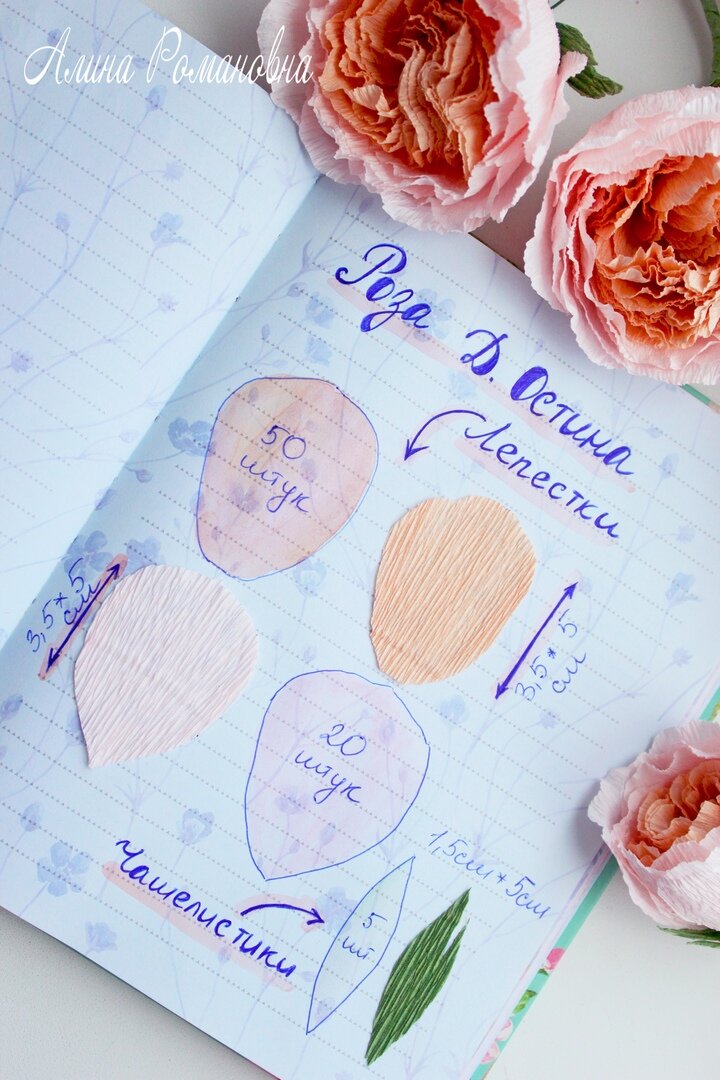 Алина Романовна
Роза Д. Остина
Лепестки
50
штук
3,5*5
см
3,5*5
см
20
штук
Чашелистики
1,5см*5см
5
шт